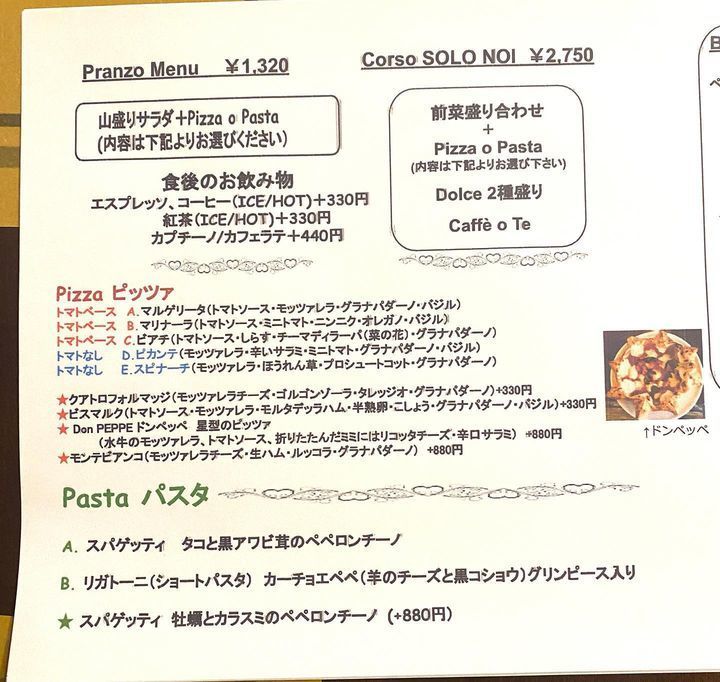 Pranzo Menu ￥1,320
山盛りサラダ＋Pizza o Pasta
(内容は下記よりお選びください)
食後のお飲み物
エスプレッソ、コーヒー(ICE/HOT)＋330円
紅茶(ICE/HOT)＋330円
カプチーノ/カフェラテ＋440円
Corso SOLO NOI ￥2,750
前菜盛り合わせ
＋
Pizza o Pasta
(内容は下記よりお選び下さい)
Dolce 2種盛り
Caffè o Te
Pizza ピッツァ
トマトベース A.マルゲリータ(トマトソース・モッツァレラ・グラナパダーノ・バジル)
トマトベース B.マリナーラ(トマトソース・ミニトマト・ニンニク・オレガノ・バジル)
トマトベース C.ビアチ(トマトソース・しらす・チーマディラーパ(菜の花)・グラナパダーノ)
トマトなし D.ピカンテ(モッツァレラ・辛いサラミ・ミニトマト・グラナパダーノ・バジル)
トマトなし E.スピナーチ(モッツァレラ・ほうれん草・プロシュートコット・グラナパダーノ)
★クアトロフォルマッジ(モッツァレラチーズ・ゴルゴンゾーラ・タレッジオ・グラナパダーノ)+330円
★ビスマルク(トマトソース・モッツァレラ・モルタデッラハム・半熟卵・こしょう・グラナパダーノ・バジル)+330円
★ Don PEPPE ドンペッペ 星型のピッツァ
(水牛のモッツァレラ、トマトソース、折りたたんだミミにはリコッタチーズ・辛口サラミ) +880円
★モンテビアンコ(モッツァレラチーズ・生ハム・ルッコラ・グラナパダーノ) +880円
↑ドンペッペ
Pasta パスタ
A. スパゲッティ タコと黒アワビ茸のペペロンチーノ
B. リガトーニ(ショートパスタ) カーチョエペペ(羊のチーズと黒コショウ)グリンピース入り
★ スパゲッティ 牡蠣とカラスミのペペロンチーノ (+880円)